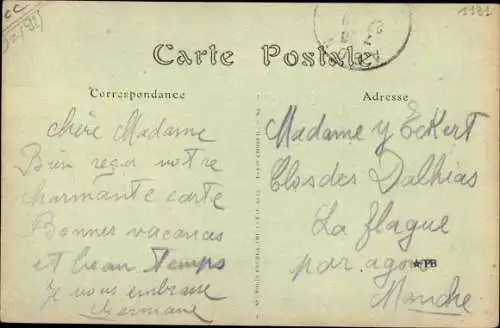 1131
Carte Postale
Correspondance
Adresse
chère Madame
Bien reçu votre
charmante carte
Bonnes vacances
et beau Temps
Je vous embrasse
Germaine
Madame Y Eckert
Clos des Dalhias
La flague
par agon
★PB
Manche